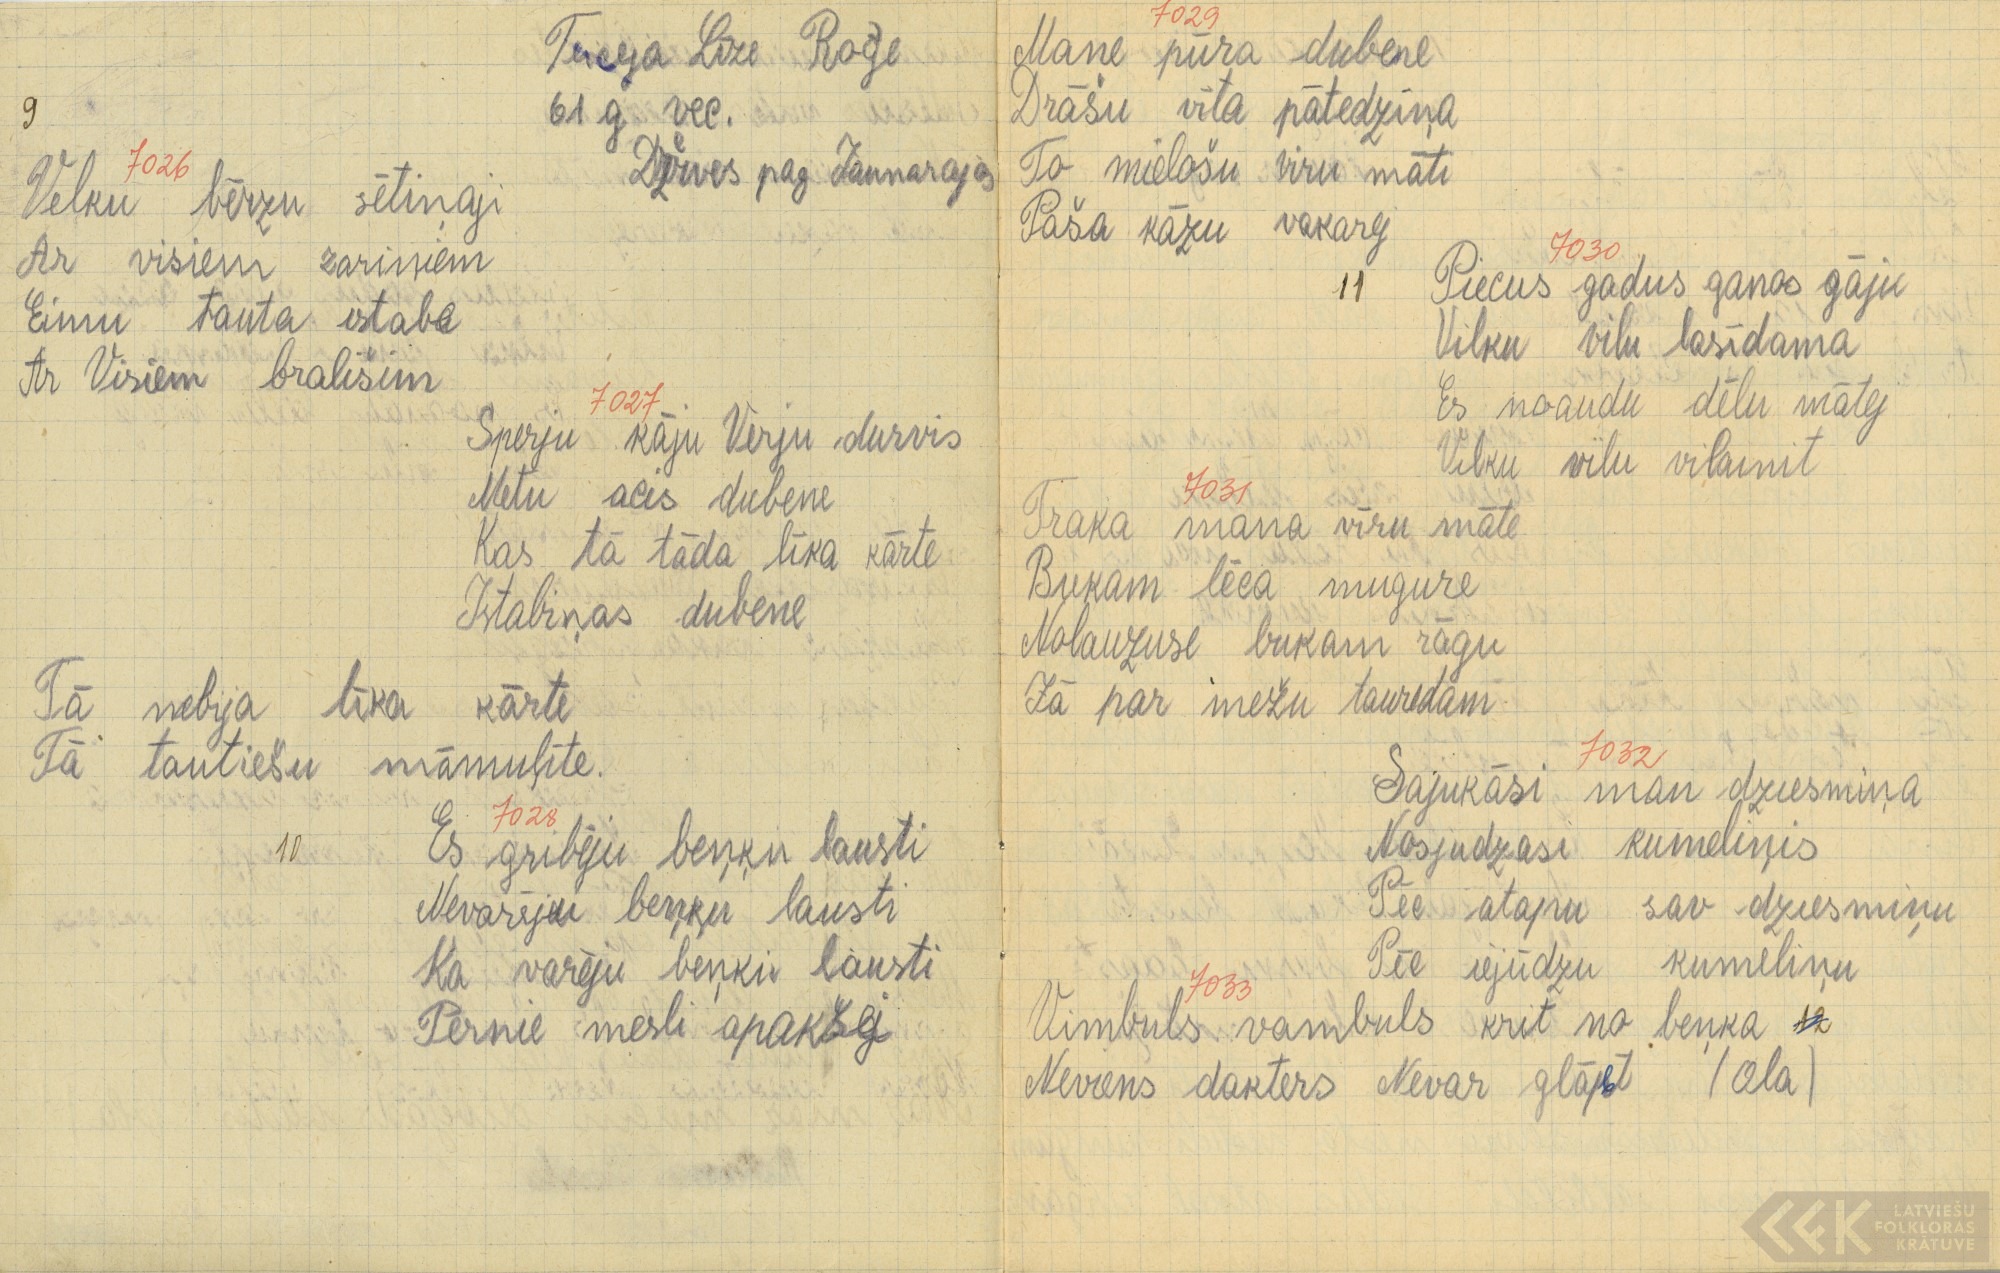 Teceja Līze Roģe
61 g vec.
Dzirves pag Jaunarajos
9
7026
Velku bērzu sētiņaji
Ar visiem zariņiem
Eimu tauta istabe
Ar Visiem brališim
7027
Sperju kāju Vērju durvis
Metu acis dubene
Kas tā tāda līka kārte
Istabiņas dubene
Tā nebija līka kārte
Tā tautiešu māmuļīte.
7028
10
Es gribēju beņķu lausti
Nevarēju beņķu lausti
Ka varēju beņķu lausti
Pernie mesli apakšej
7029
Mane pūra dubene
Drāšu vīta pātedziņa
To mielošu viru māti
Paša kāzu vakarej
7030
11
Piecus gadus ganos gāju
Vilku vilu lasīdama
Es noaudu dēlu mātej
Vilku vilu vilainit
7031
Traka mana vīru māte
Bukam lēca mugure
Nolauzuse bukam rāgu
Jā par mežu tauredam
7032
Sajukāsi man dziesmiņa
Nosjudzasi kumeliņis
Pēc atapu sav dziesmiņu
Pēc iejūdzu kumeliņu
7033
Vimbuls vambuls krit no beņka 12
Neviens dakters Nevar glābt (Ola)
LATVIEŠU
FOLKLORAS
KRĀTUVE